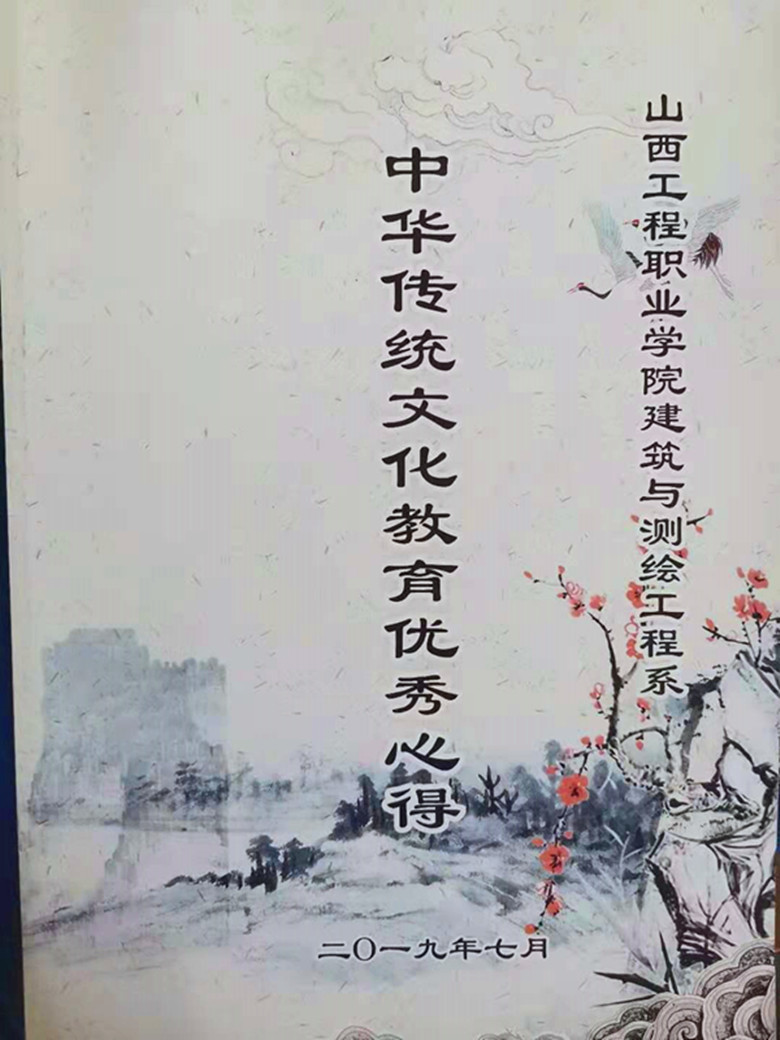 山西工程职业学院建筑与测绘工程系
中华传统文化教育优秀心得
二〇一九年七月